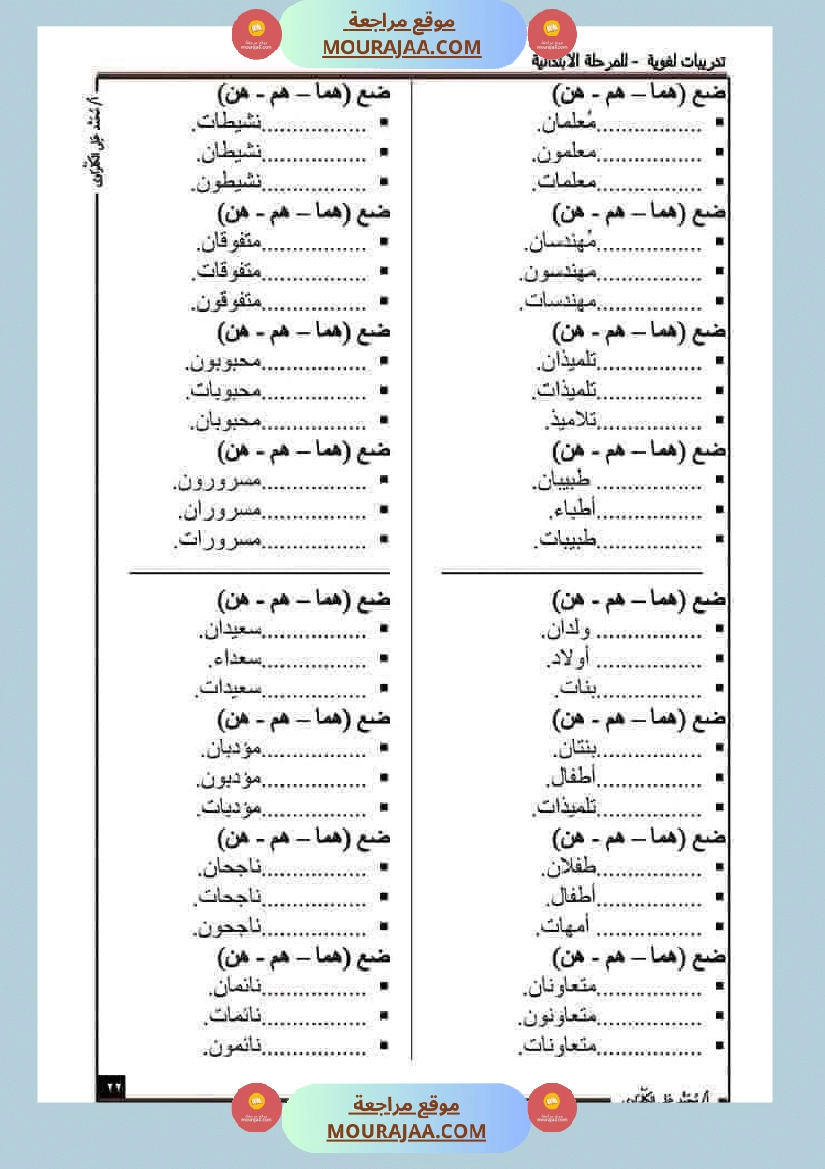 موقع مراجعة
MOURAJAA.COM
تدريبات لغوية - للمرحلة الابتدائية
ضع (هما – هم - هن)
▪ .................مُعلمان.
▪ .................معلمون.
▪ .................معلمات.
ضع (هما – هم - هن)
▪ .................مُهندسان.
▪ .................مهندسون.
▪ .................مهندسات.
ضع (هما – هم - هن)
▪ .................تلميذان.
▪ .................تلميذات.
▪ .................تلاميذ.
ضع (هما – هم - هن)
▪ ................. طبيبان.
▪ .................أطباء.
▪ .................طبيبات.
ضع (هما – هم - هن)
▪ ................. ولدان.
▪ ................. أولاد.
▪ .................بنات.
ضع (هما – هم - هن)
▪ .................بنتان.
▪ .................أطفال.
▪ .................تلميذات.
ضع (هما – هم - هن)
▪ .................طفلان.
▪ .................أطفال.
▪ ................. أمهات.
ضع (هما – هم - هن)
▪ .................متعاونان.
▪ .................متعاونون.
▪ .................متعاونات.
ضع (هما – هم - هن)
▪ .................نشيطات.
▪ .................نشيطان.
▪ .................نشيطون.
ضع (هما – هم - هن)
▪ .................متفوقان.
▪ .................متفوقات.
▪ .................متفوقون.
ضع (هما – هم - هن)
▪ .................محبوبون.
▪ .................محبوبات.
▪ .................محبوبان.
ضع (هما – هم - هن)
▪ .................مسرورون.
▪ .................مسروران.
▪ .................مسرورات.
ضع (هما – هم - هن)
▪ .................سعيدان.
▪ .................سعداء.
▪ .................سعيدات.
ضع (هما – هم - هن)
▪ .................مؤدبان.
▪ .................مؤدبون.
▪ .................مؤدبات.
ضع (هما – هم - هن)
▪ .................ناجحان.
▪ .................ناجحات.
▪ .................ناجحون.
ضع (هما – هم - هن)
▪ .................نائمان.
▪ .................نائمات.
▪ .................نائمون.
٢٦
موقع مراجعة
MOURAJAA.COM